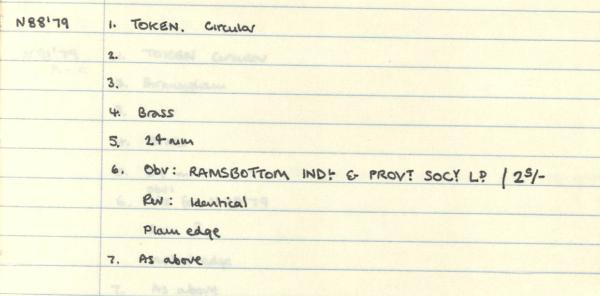 N88'79 1. TOKEN. Circular
2.
3.
4. Brass
5. 24mm
6. Obv: RAMSBOTTOM INDL & PROVT SOCY LD / 2S/-
Rev: Identical
Plain edge
7. As above